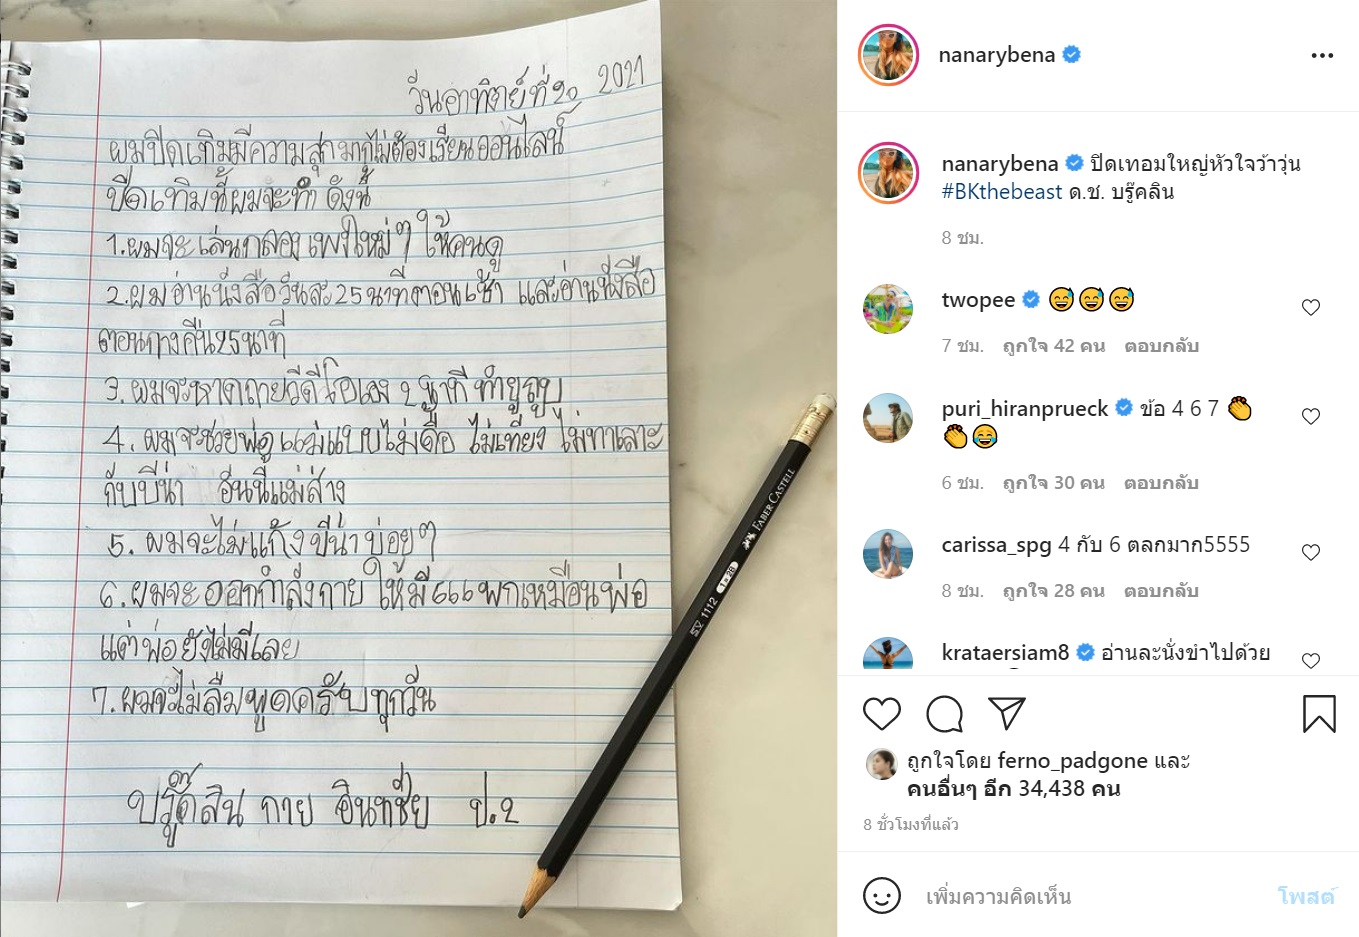 วันอาทิตย์ที่ 20 2021
ผมปิดเทิมมีความสุ มากไม่ต้องเรียนออนไลน์
ปิดเทิมนี้ผมจะทำ ดังนี้
1.ผมจะเล่นกลองเพงใหม่ๆ ให้คนดู
2.ผมอ่านนังสือวันละ25นาทีตอนเช้า และอ่านนังสือ
ตอนกางคืน25นาที
3.ผมจะหาดถายวีดีโอเอง 2 นาที ทำยูถูบ
4. ผมจะช่วยพ่ดูแม่แบบไม่ดื้อ ไม่เทียง ไม่ทาเลาะ
กับบีน่า อันนี้แม่สั่ง
5. ผมจะไม่แก้งบีน่าบ่อยๆ
6.ผมจะออกกำลังกาย ให้มี 6ผผ พกเหมือนพ่อ
แต่พ่อยังไม่มีเลย
7.ผมจะไม่ลืมพูดครับทุกวัน
บรู๊คลิน กาย อินทชัย ป.2
FABER CASTELL
1112
1=2B
nanarybena
nanarybena ปิดเทอมใหญ่หัวใจว้าวุ่น
#BKthebeast ด.ช. บรู๊คลิน
8 ชม.
twopee 😅😅😅
7 ชม. ถูกใจ 42 คน ตอบกลับ
puri_hiranprueck ข้อ 4 6 7 👏
👏😂
6 ชม. ถูกใจ 30 คน ตอบกลับ
carissa_spg 4 กับ 6 ตลกมาก5555
8 ชม. ถูกใจ 28 คน ตอบกลับ
krataersiam8 อ่านละนั่งขำไปด้วย
ถูกใจโดย ferno_padgone และ
คนอื่นๆ อีก 34,438 คน
8 ชั่วโมงที่แล้ว
เพิ่มความคิดเห็น
โพสต์